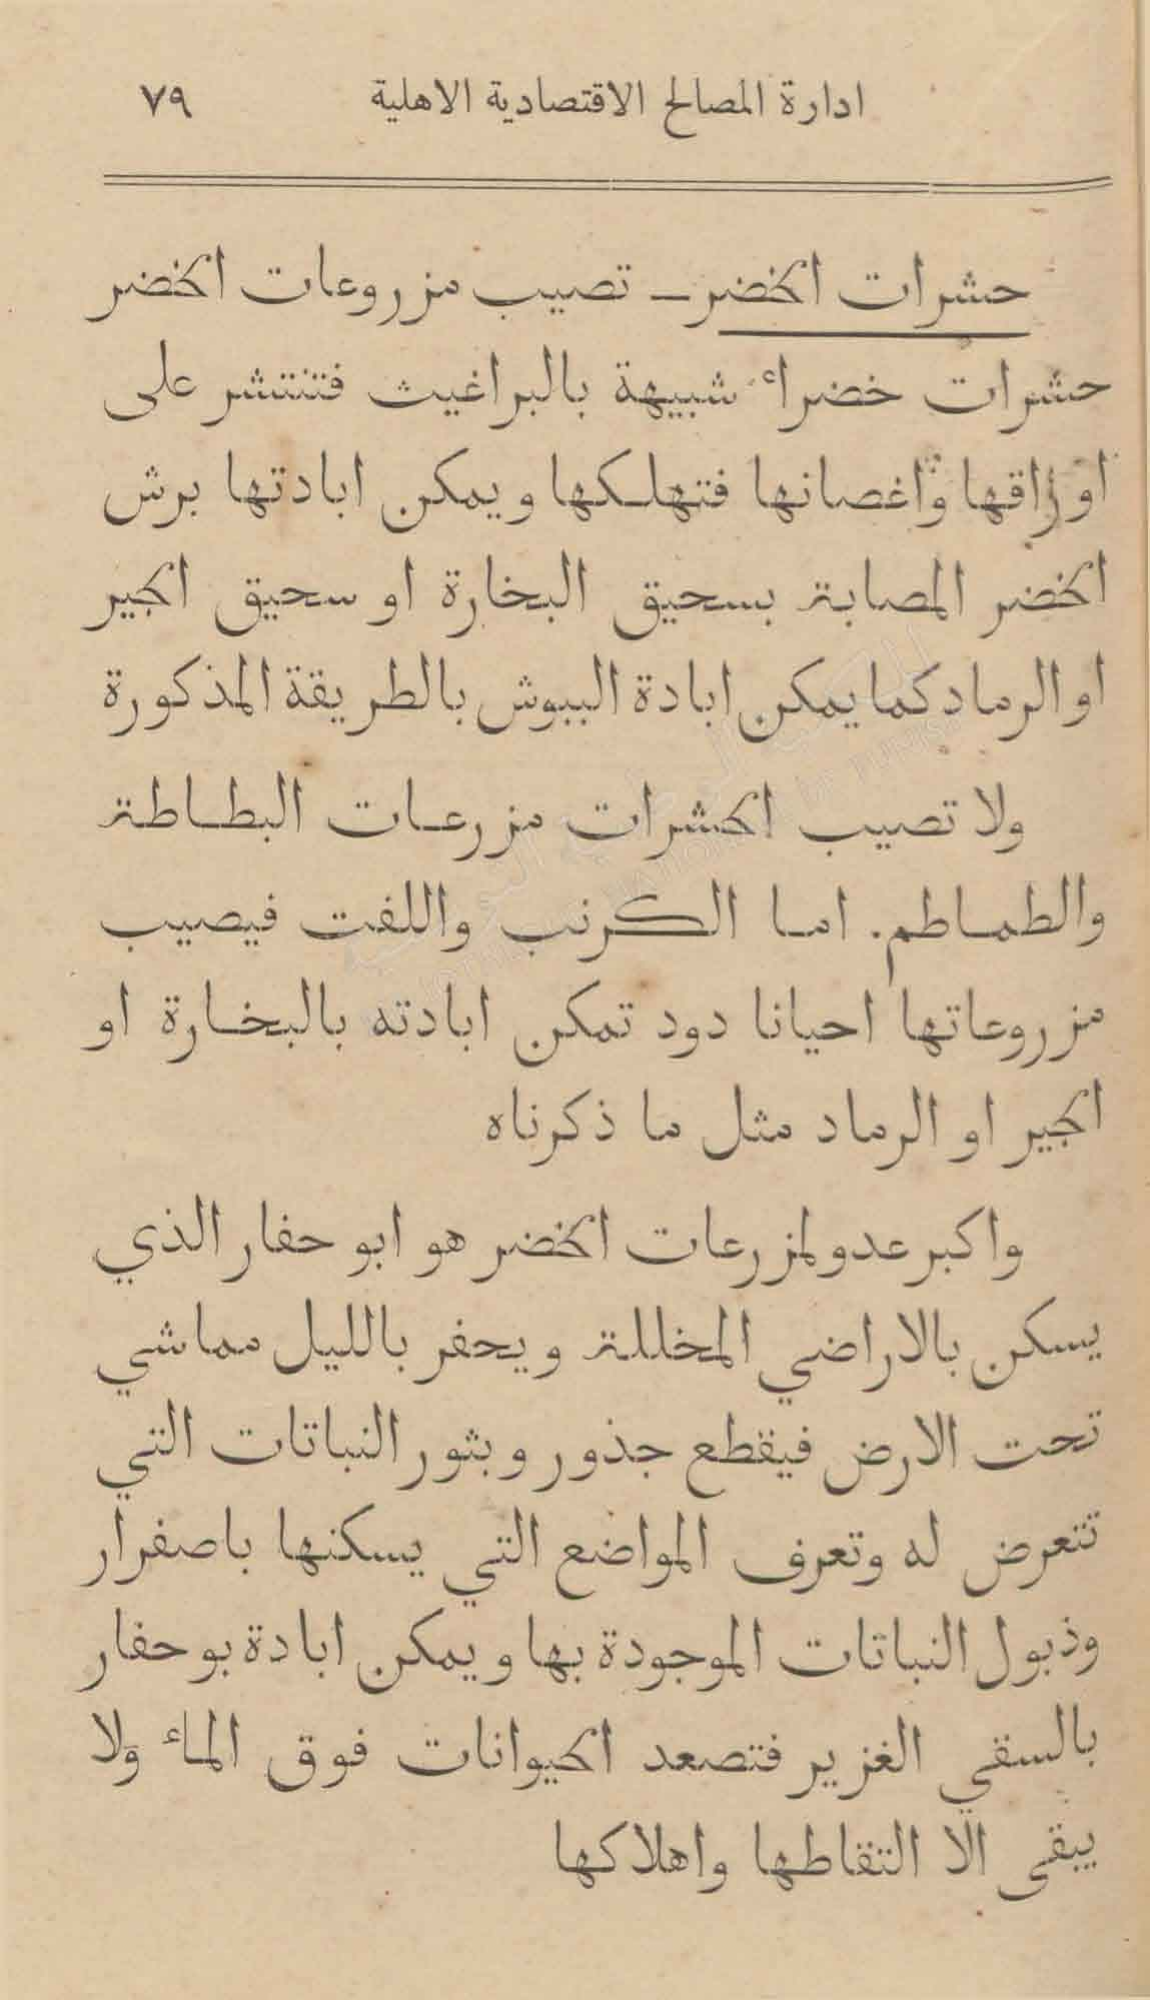 ادارة المصالح الاقتصادية الاهلية ٧٩
حشرات الخضر — تصيب مزروعات الخضر
حشرات خضراء شبيهة بالبراغيث فتنتشر على
اوراقها واغصانها فتهلكها ويمكن ابادتها برش
الخضر المصابة بسحيق البخارة او سحيق الجير
او الرماد كما يمكن ابادة الببوش بالطريقة المذكورة
ولا تصيب الحشرات مزرعات البطاطة
والطماطم. اما الكرنب واللفت فيصيب
مزروعاتها احيانا دود تمكن ابادته بالبخارة او
الجير او الرماد مثل ما ذكرناه
واكبر عدو لمزرعات الخضر هو ابو حفار الذي
يسكن بالاراضي المخللة ويحفر بالليل مماشي
تحت الارض فيقطع جذور وبثور النباتات التي
تتعرض له وتعرف المواضع التي يسكنها باصفرار
وذبول النباتات الموجودة بها ويمكن ابادة بوحفار
بالسقي الغزير فتصعد الحيوانات فوق الماء ولا
يبقى الا التقاطها واهلاكها